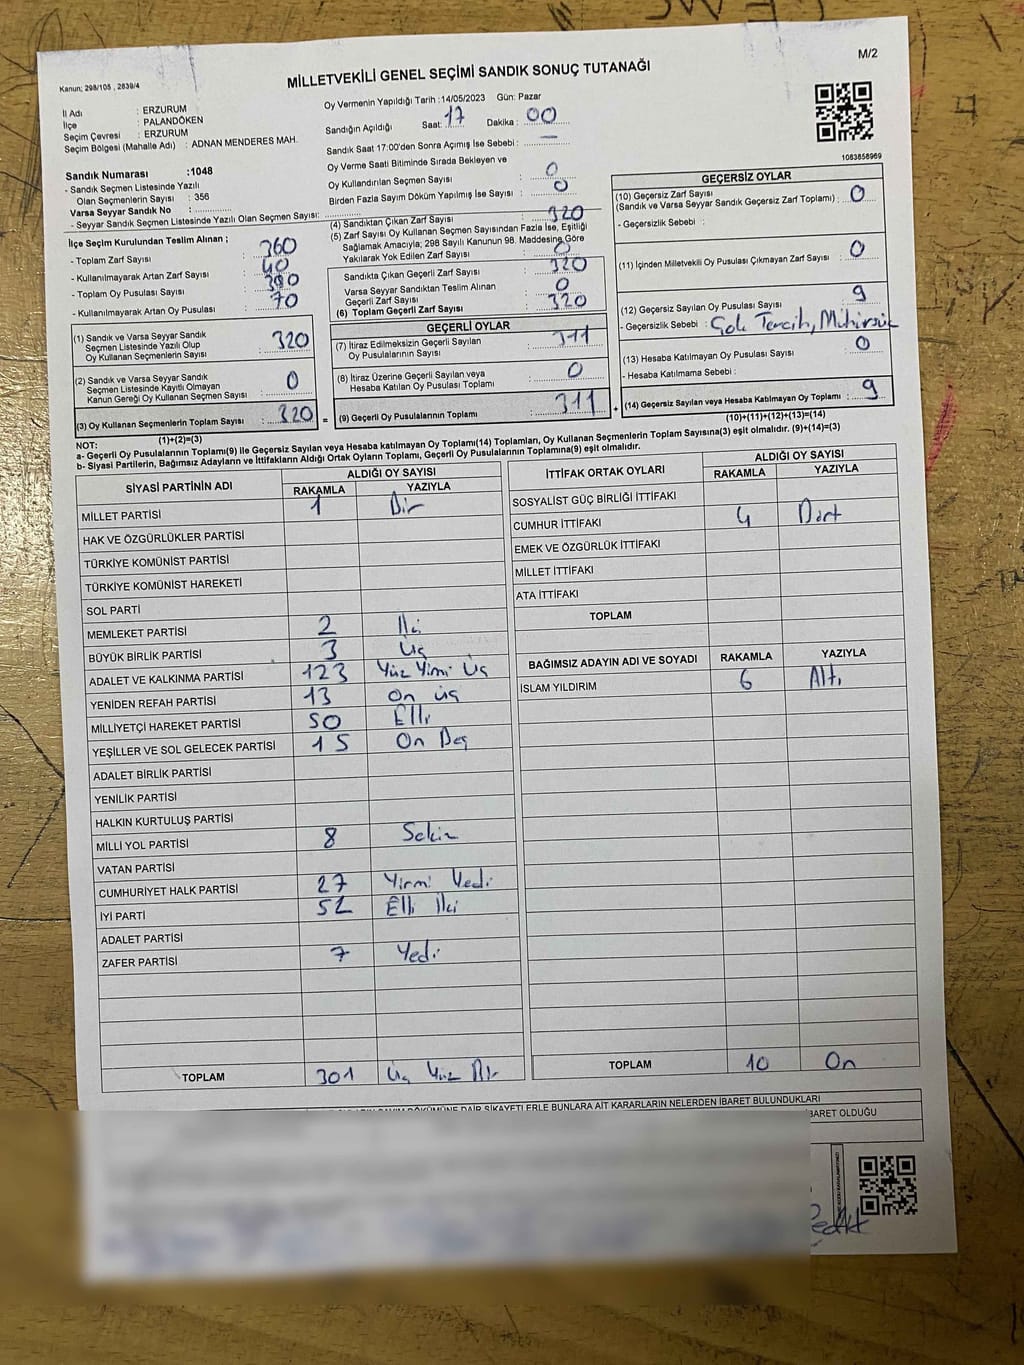 M/2
Kanun; 298/105 , 2839/4
MİLLETVEKİLİ GENEL SEÇİMİ SANDIK SONUÇ TUTANAĞI
İl Adı : ERZURUM
İlçe : PALANDÖKEN
Seçim Çevresi : ERZURUM
Seçim Bölgesi (Mahalle Adı) : ADNAN MENDERES MAH.
Oy Vermenin Yapıldığı Tarih :14/05/2023 Gün: Pazar
Sandığın Açıldığı Saat: 17 Dakika : 00
Sandık Saat 17:00'den Sonra Açımış İse Sebebi : —
Oy Verme Saati Bitiminde Sırada Bekleyen ve
Oy Kullandırılan Seçmen Sayısı : 0
Birden Fazla Sayım Döküm Yapılmış İse Sayısı : 0
1083858969
Sandık Numarası :1048
- Sandık Seçmen Listesinde Yazılı
Olan Seçmenlerin Sayısı : 356
Varsa Seyyar Sandık No :
- Seyyar Sandık Seçmen Listesinde Yazılı Olan Seçmen Sayısı:
İlçe Seçim Kurulundan Teslim Alınan ;
- Toplam Zarf Sayısı : 360
- Kullanılmayarak Artan Zarf Sayısı : 40
- Toplam Oy Pusulası Sayısı :
- Kullanılmayarak Artan Oy Pusulası : 70
(1) Sandık ve Varsa Seyyar Sandık
Seçmen Listesinde Yazılı Olup
Oy Kullanan Seçmenlerin Sayısı : 320
(2) Sandık ve Varsa Seyyar Sandık
Seçmen Listesinde Kayıtlı Olmayan
Kanun Gereği Oy Kullanan Seçmen Sayısı : 0
(3) Oy Kullanan Seçmenlerin Toplam Sayısı : 320 =
(1)+(2)=(3)
(4) Sandıktan Çıkan Zarf Sayısı : 320
(5) Zarf Sayısı Oy Kullanan Seçmen Sayısından Fazla İse, Eşitliği
Sağlamak Amacıyla; 298 Sayılı Kanunun 98. Maddesine Göre
Yakılarak Yok Edilen Zarf Sayısı : 0
Sandıkta Çıkan Geçerli Zarf Sayısı : 320
Varsa Seyyar Sandıktan Teslim Alınan
Geçerli Zarf Sayısı : 0
(6) Toplam Geçerli Zarf Sayısı : 320
GEÇERLİ OYLAR
(7) İtiraz Edilmeksizin Geçerli Sayılan
Oy Pusulalarının Sayısı : 311
(8) İtiraz Üzerine Geçerli Sayılan veya
Hesaba Katılan Oy Pusulası Toplamı : 0
(9) Geçerli Oy Pusulalarının Toplamı : 311 +
GEÇERSİZ OYLAR
(10) Geçersiz Zarf Sayısı
(Sandık ve Varsa Seyyar Sandık Geçersiz Zarf Toplamı) : 0
- Geçersizlik Sebebi :
(11) İçinden Milletvekili Oy Pusulası Çıkmayan Zarf Sayısı : 0
(12) Geçersiz Sayılan Oy Pusulası Sayısı : 9
- Geçersizlik Sebebi : Çok Tercih, Mühürsüz
(13) Hesaba Katılmayan Oy Pusulası Sayısı : 0
- Hesaba Katılmama Sebebi :
(14) Geçersiz Sayılan veya Hesaba Katılmayan Oy Toplamı : 9
(10)+(11)+(12)+(13)=(14)
NOT:
a- Geçerli Oy Pusulalarının Toplamı(9) ile Geçersiz Sayılan veya Hesaba katılmayan Oy Toplamı(14) Toplamları, Oy Kullanan Seçmenlerin Toplam Sayısına(3) eşit olmalıdır. (9)+(14)=(3)
b- Siyasi Partilerin, Bağımsız Adayların ve İttifakların Aldığı Ortak Oyların Toplamı, Geçerli Oy Pusulalarının Toplamına(9) eşit olmalıdır.
SİYASİ PARTİNİN ADI ALDIĞI OY SAYISI
RAKAMLA YAZIYLA
MİLLET PARTİSİ 1 Bir
HAK VE ÖZGÜRLÜKLER PARTİSİ
TÜRKİYE KOMÜNİST PARTİSİ
TÜRKİYE KOMÜNİST HAREKETİ
SOL PARTİ
MEMLEKET PARTİSİ 2 İki
BÜYÜK BİRLİK PARTİSİ 3 Üç
ADALET VE KALKINMA PARTİSİ 123 Yüz Yirmi Üç
YENİDEN REFAH PARTİSİ 13 On üç
MİLLİYETÇİ HAREKET PARTİSİ 50 Elli
YEŞİLLER VE SOL GELECEK PARTİSİ 15 On Beş
ADALET BİRLİK PARTİSİ
YENİLİK PARTİSİ
HALKIN KURTULUŞ PARTİSİ
MİLLİ YOL PARTİSİ 8 Sekiz
VATAN PARTİSİ
CUMHURİYET HALK PARTİSİ 27 Yirmi Yedi
İYİ PARTİ 52 Elli İki
ADALET PARTİSİ
ZAFER PARTİSİ 7 Yedi
TOPLAM 301 Üç Yüz Bir
İTTİFAK ORTAK OYLARI ALDIĞI OY SAYISI
RAKAMLA YAZIYLA
SOSYALİST GÜÇ BİRLİĞİ İTTİFAKI
CUMHUR İTTİFAKI 4 Dört
EMEK VE ÖZGÜRLÜK İTTİFAKI
MİLLET İTTİFAKI
ATA İTTİFAKI
TOPLAM
BAĞIMSIZ ADAYIN ADI VE SOYADI RAKAMLA YAZIYLA
İSLAM YILDIRIM 6 Altı
TOPLAM 10 On
DÖKÜMÜNE DAİR ŞİKAYETLERLE BUNLARA AİT KARARLARIN NELERDEN İBARET BULUNDUKLARI
İBARET OLDUĞU